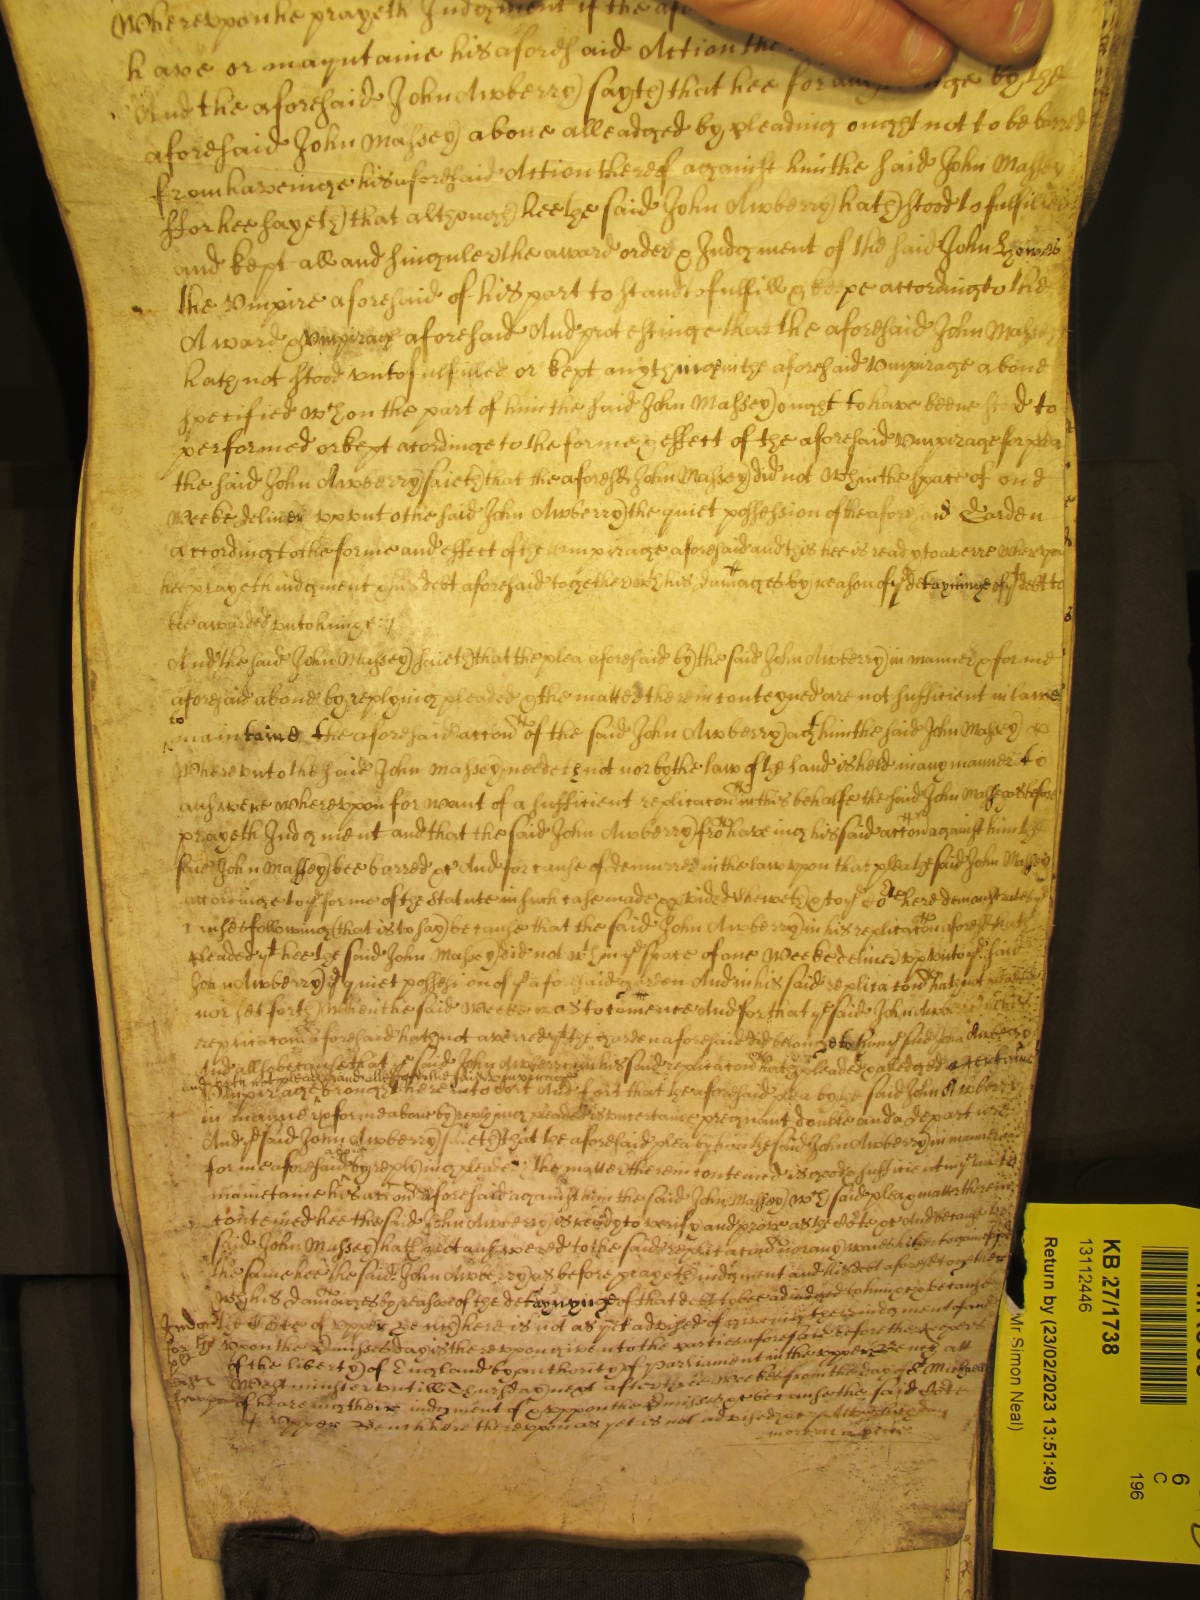 Wherevpon he prayeth Judgment if the afo
have or mayntaine his aforesaid Action the
And the aforesaid John Awberry sayth that hee for any ge by the
aforesaid John Massey above alleadged by pleading ought not to be barred
from haveinge his aforesaid Action thereof against him the said John Massey
ffor hee sayeth that although hee the said John Awberry hath stood to fulfilled
and kept all and singuler the award order & Judgment of the said John
the Vmpire aforesaid of his part to stand to fulfill & keepe according to the
Award & Vmpirage aforesaid And protestinge that the aforesaid John Massey
hath not stood vnto fulfilled or kept any thing in the aforesaid Vmpirage above
specified wch on the part of him the said John Massey ought to have beene stood to
performed or kept acordinge to the forme & effect of the aforesaid Vmpirage for plea
the said John Awberry saieth that the aforesd John Massey did not wthin the space of one
Weeke deliver vp vnto the said John Awberry the quiet possession of the aforesaid Garden
according to the forme and effect of the Vmpirage aforesaid and this hee is ready to averre Wherevpon
hee prayeth indgment & his debt aforesaid together wth his damages by reason of ye detayninge of yt debt to
bee awarded vnto him &c
And the said John Massey saieth that the plea aforesaid by the said John Awberry in manner & forme
aforesaid above by replying pleaded & the matter therein conteyned are not sufficient in lawe
to
maintaine the aforesaid accon of the said John Awberry agt him the said John Massey &
Wherevnto the said John Massey needeth not nor by the law of the land is held in any manner to
answere wherevpon for want of a sufficient replicacon in this behalfe the said John Massey as before
prayeth Judgment and that the said John Awberry from haveing his said accon against him the
said John Massey bee barred &c And for cause of demurrer in the law vpon that plea the said John Massey
accordinge to ye forme of the Statute in such case made & pvided sheweth & to ye Cort here demonstrates ye
causes following that is to say because that the said John Awberry in his replicacon aforesd hath
pleaded yt hee the said John Massey did not wthin ye space of one Weeke deliver vp vnto ye said
John Awberry ye quiet possession of ye aforesaid garden And in his said replicacon hath not pleaded
nor set forth when the said Weeke was to comence And for that ye said John Awberry in his
replicacon aforesaid hath not averred yt the garden aforesaid did belonge to him ye said John Awberry
And allso because that ye said John Awberry in his said replicacon hath pleaded & alledged
Vmpirage brought here into Cort And for that the aforesaid plea by the said John Awberry
in manner & forme above by replying pleaded is vncertaine pregnant double and a departure
And ye said John Awberry saieth that the aforesaid plea by him the said John Awberry in manner and
forme aforesaid above by replying pleaded & the matter therein contained is good & sufficient in ye law to
maintaine his accon aforesaid against him the said John Massey wch said plea & matter therein
contained hee the said John Awberry is ready to verify and prove as the Cort &c And because the
said John Massey hath not answered to the said replicacon nor any waies hitherto gainsaid
the same hee the said John Awberry as before prayeth indgment and his debt aforesd together
wth his damages by reason of the detayninge of that debt to bee adiudged to him &c & because
the Cort of vpper bench here is not as yet advised of giveing their indgment of and
vpon the pmisses day is therevpon given to the parties aforesaid before the keepers
of the liberty of England by authority of Parliament in the vpper bench att
Westminster vntill Thursday next after three Weekes from the day of St Michael
of heareing their indgment of & vppon the pmisses &c because the said Cort
of Vpper Bench here therevpon as yet is not advised &c
KB 27/1738
13112446
Return by (23/02/2023 13:51:49)
Mr Simon Neal)
6
C
196